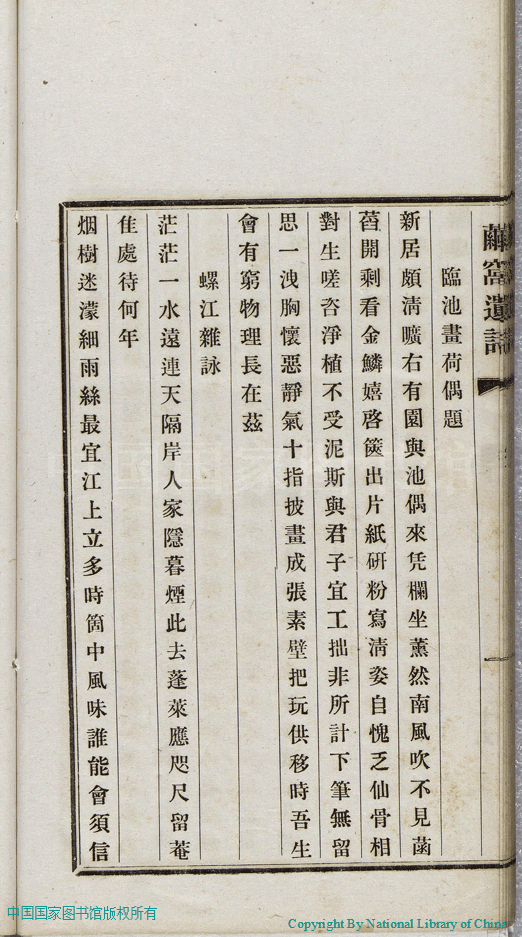 繭窩遺詩
臨池畫荷偶題
新居頗淸曠右有園與池偶來凭欄坐薰然南風吹不見菡
萏開剩看金鱗嬉啓篋出片紙硏粉寫淸姿自愧乏仙骨相
對生嗟咨淨植不受泥斯與君子宜工拙非所計下筆無留
思一洩胸懷惡靜氣十指披畫成張素壁把玩供移時吾生
會有窮物理長在茲
螺江雜詠
茫茫一水遠連天隔岸人家隱暮煙此去蓬萊應咫尺留菴
隹處待何年
烟樹迷濛細雨絲最宜江上立多時箇中風味誰能會須信
中国国家图书馆版权所有
Copyright By National Library of China